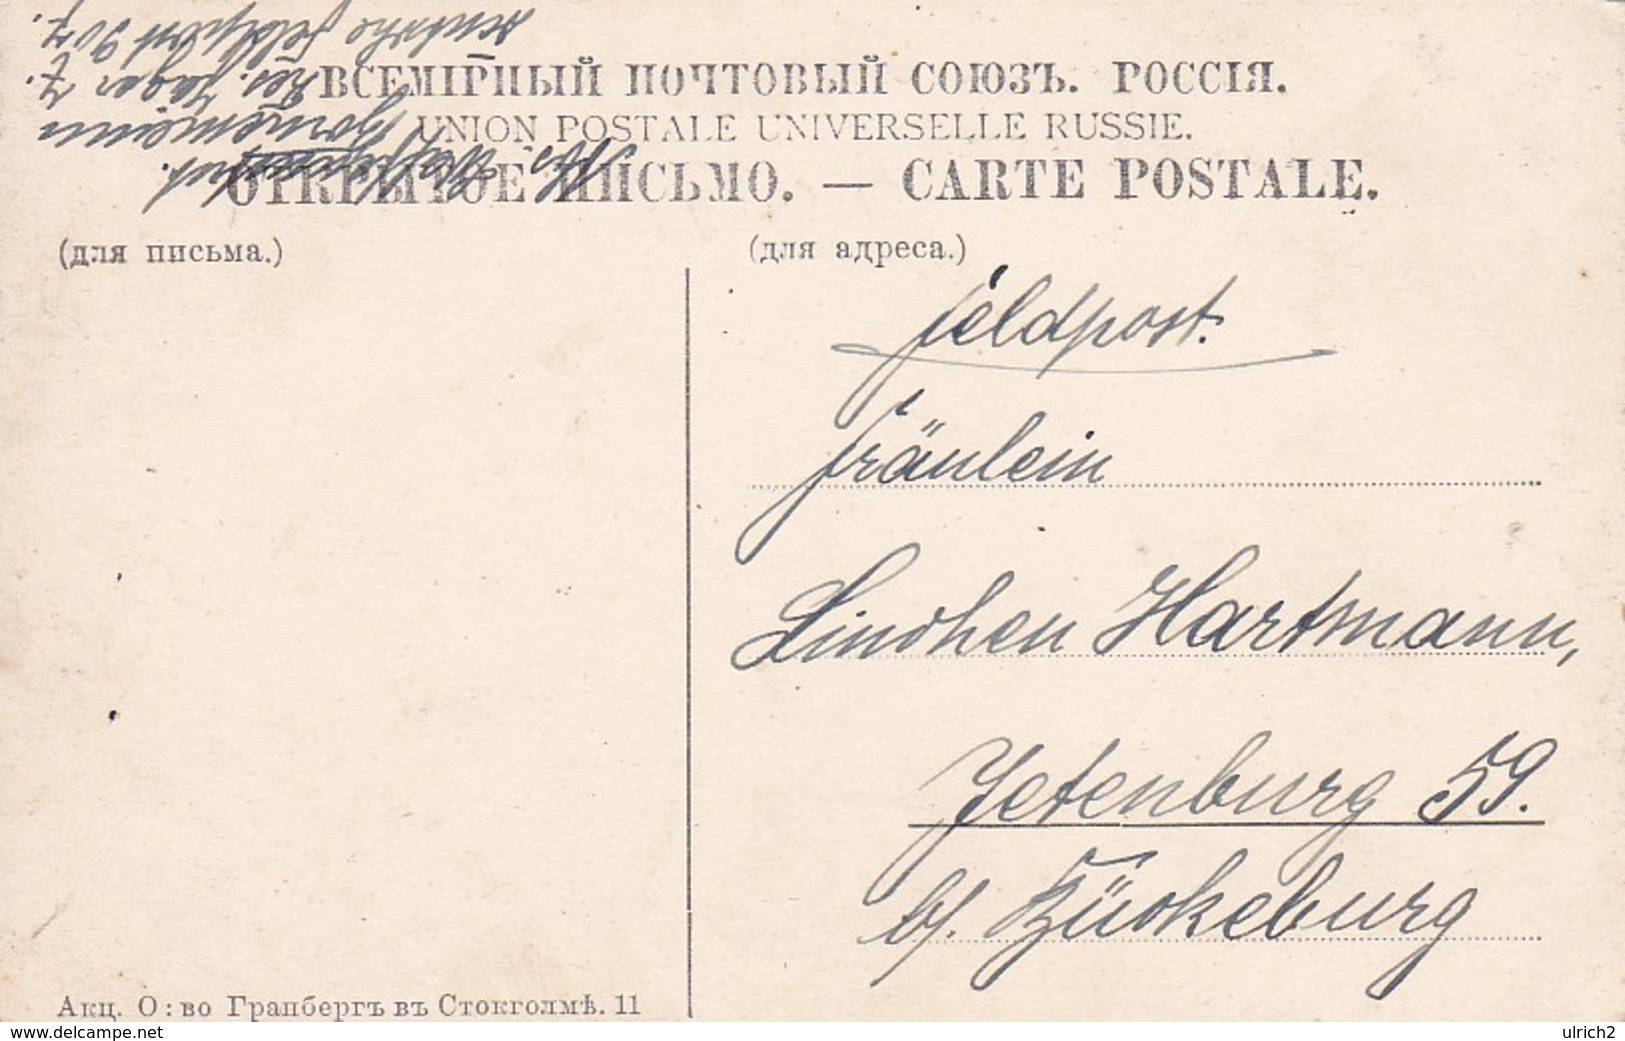 ВСЕМІРНЫЙ ПОЧТОВЫЙ СОЮЗЪ. РОССІЯ.
UNION POSTALE UNIVERSELLE RUSSIE.
ОТКРЫТОЕ ПИСЬМО. — CARTE POSTALE.
Bornemann
Res. Jäger
Feldpost 907.
(для письма.)
(для адреса.)
Feldpost.
Fräulein
Linchen Hartmann,
Jetenburg 59.
b/. Bückeburg
Акц. О:во Гранбергъ въ Стокголмѣ. 11
www.delcampe.net
ulrich2